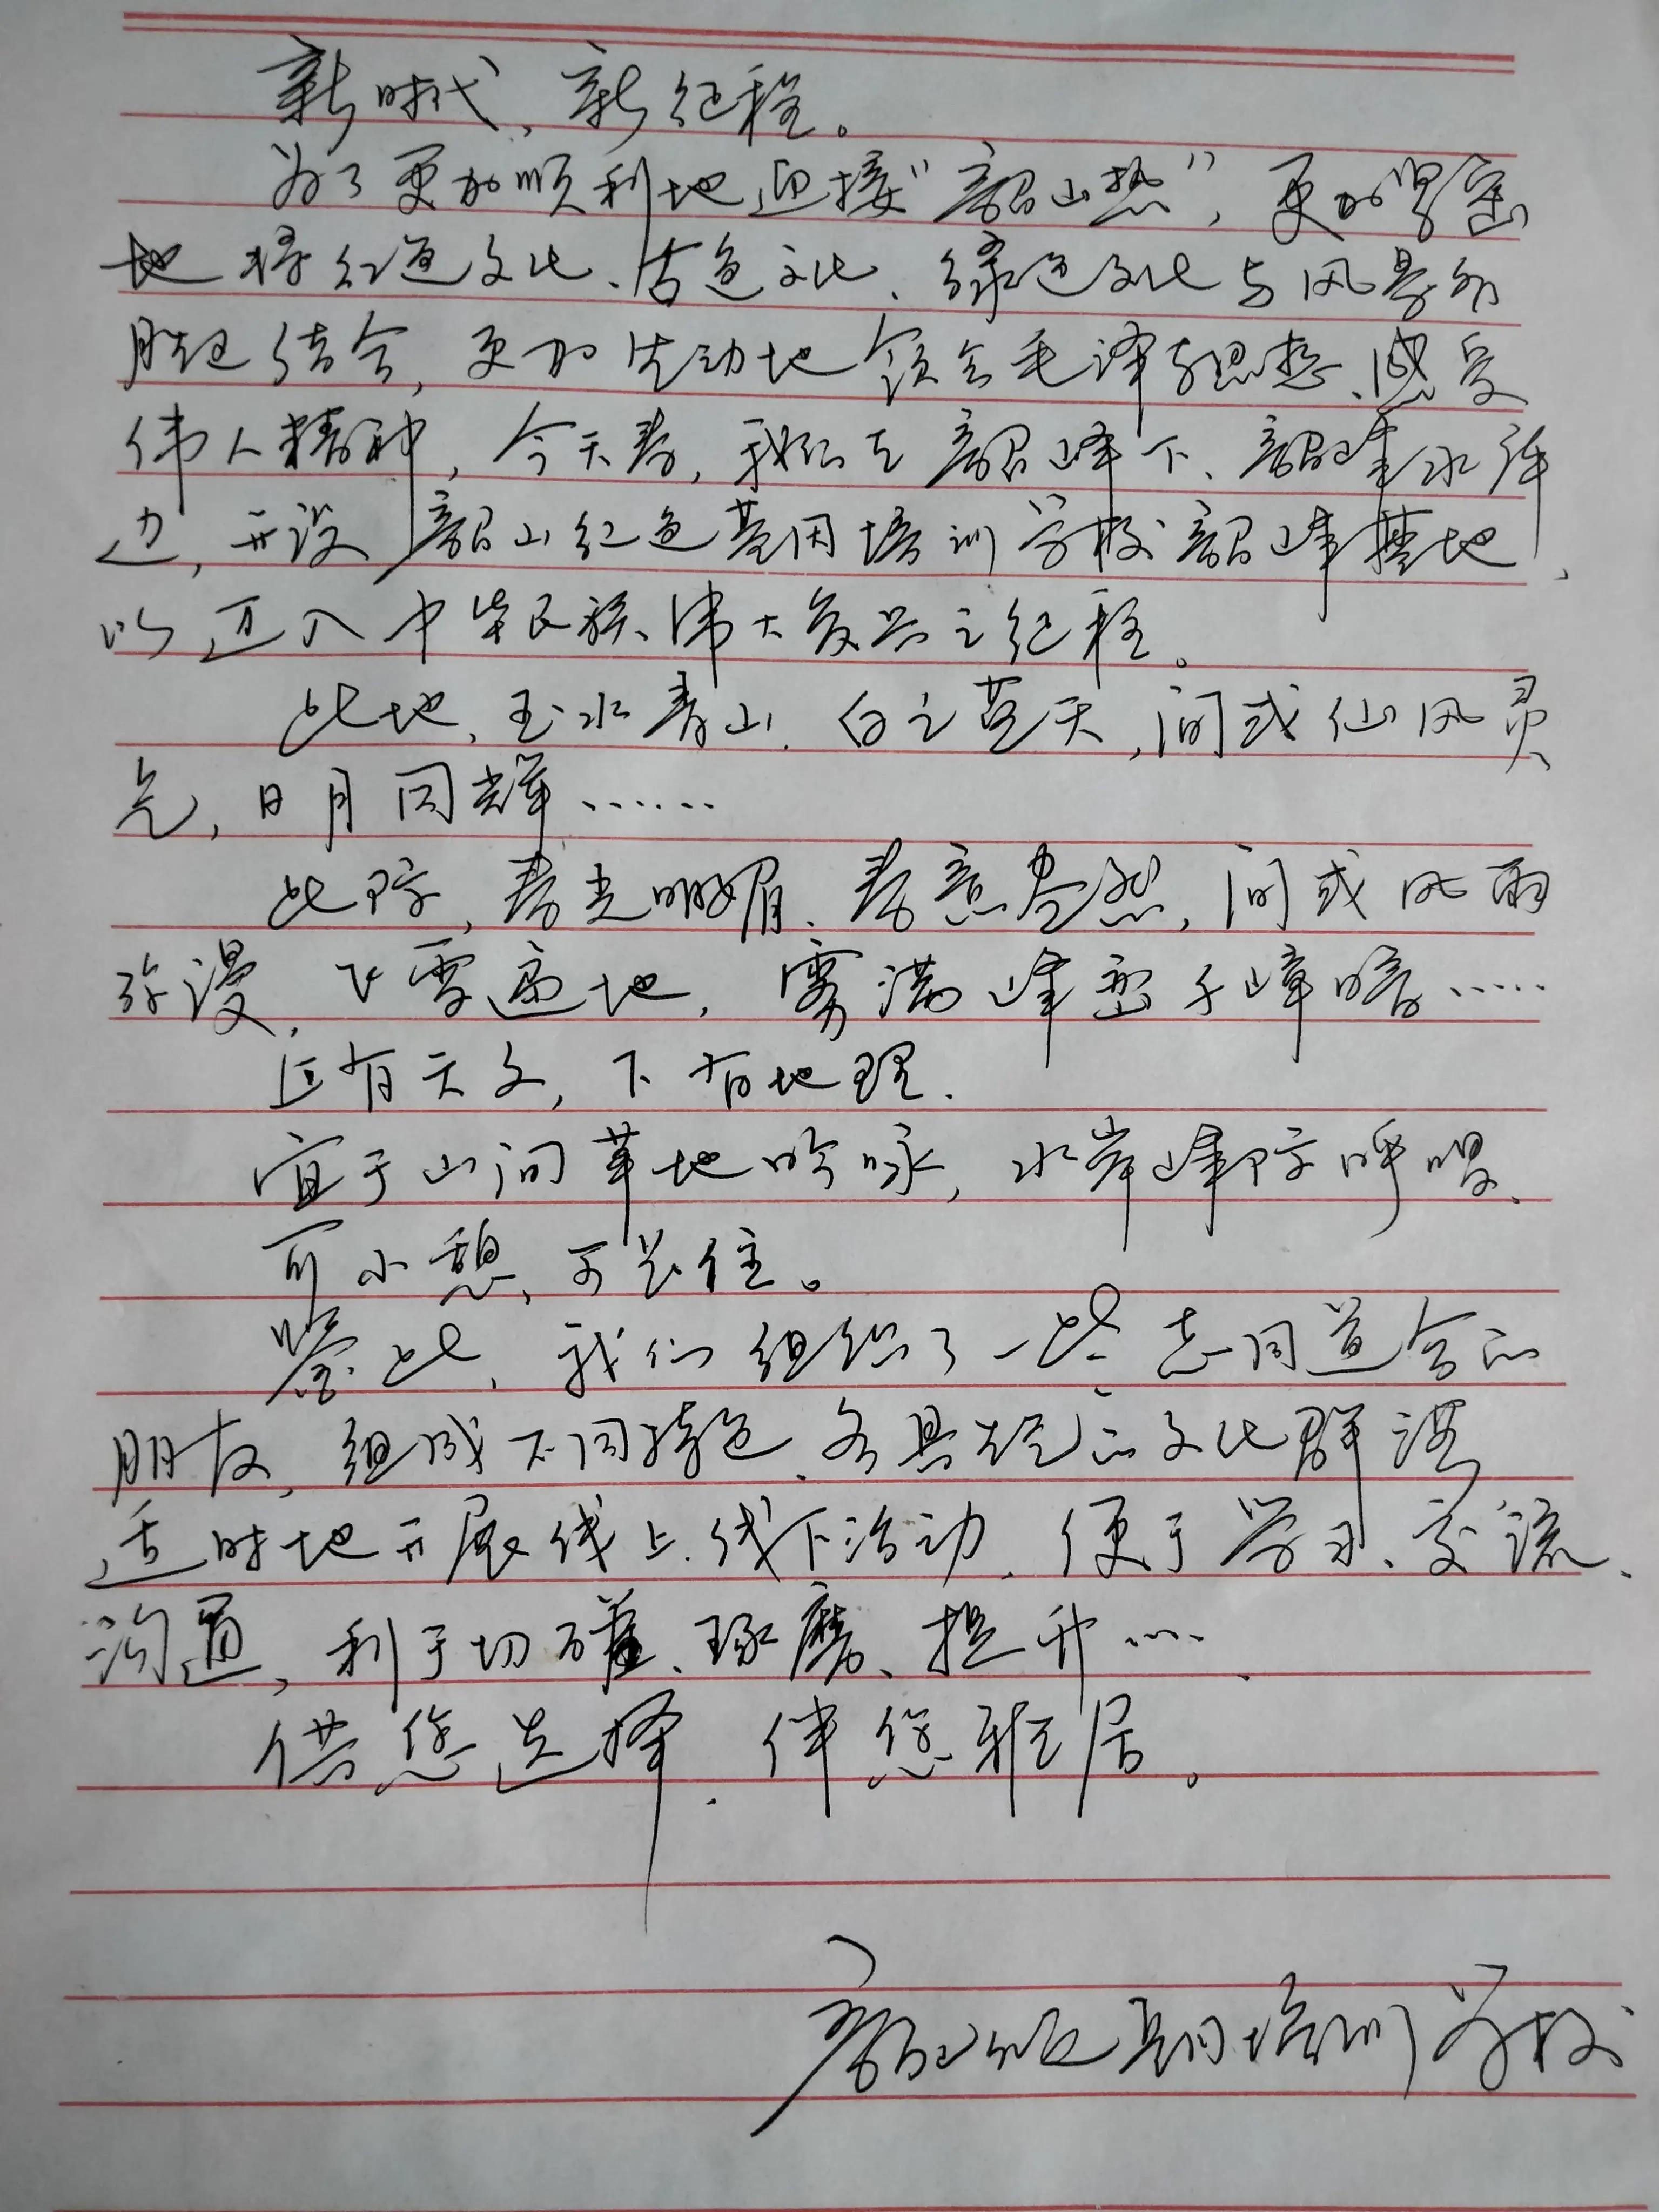 新时代、新纪程。
为了更加顺利地迎接“韶山热”，更加紧密
地将红色文化、古色文化、绿色文化与风景名
胜区结合，更加生动地领会毛泽东思想、感受
伟人精神，今天春，我们在韶峰下、韶峰水库
边，开设韶山红色基因培训学校韶峰基地，
以迈入中华民族伟大复兴之纪程。
此地，玉水青山、白云蓝天，间或仙风灵
气，日月同辉……
此际，春光明媚、春意盎然，间或风雨
弥漫、飞雪遍地，雾满峰峦千嶂暗……
上有天文，下有地理。
宜于山间草地吟咏，水岸峰际呼唱。
可小憩、可长住。
鉴此，我们组织了一些志同道合的
朋友，组成不同特色、各具的文化群谱
适时地开展线上、线下活动、便于学习、交流、
沟通，利于切磋、琢磨、提升……
供您选择、伴您雅居。
韶山红色基因培训学校